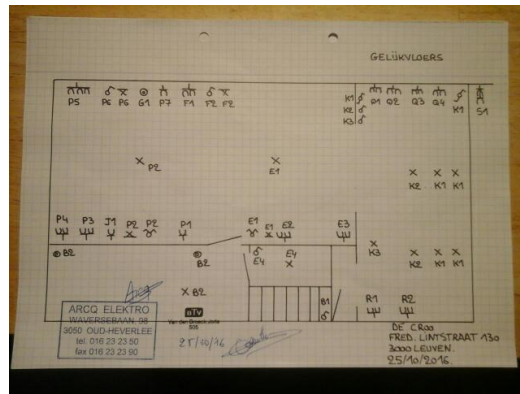 GELIJKVLOERS
P5 P6 P6 G1 P7 F1 F2 F2
K1 P1 Q2 Q3 Q4 K1 S1
K2
K3
P2
E1
K2 K1 K1
P4 P3 J1 P2 P2 P1 E1 E1 E2 E3
B2
B2
E4 E4
K3
K2 K1 K1
B2
B1
R1 R2
ARCQ ELEKTRO
WAVERSEBAAN 98
3050 OUD-HEVERLEE
tel. 016 23 23 50
fax 016 23 23 90
25/10/16
DE CROO
FRED. LINTSTRAAT 130
3000 LEUVEN.
25/10/2016.